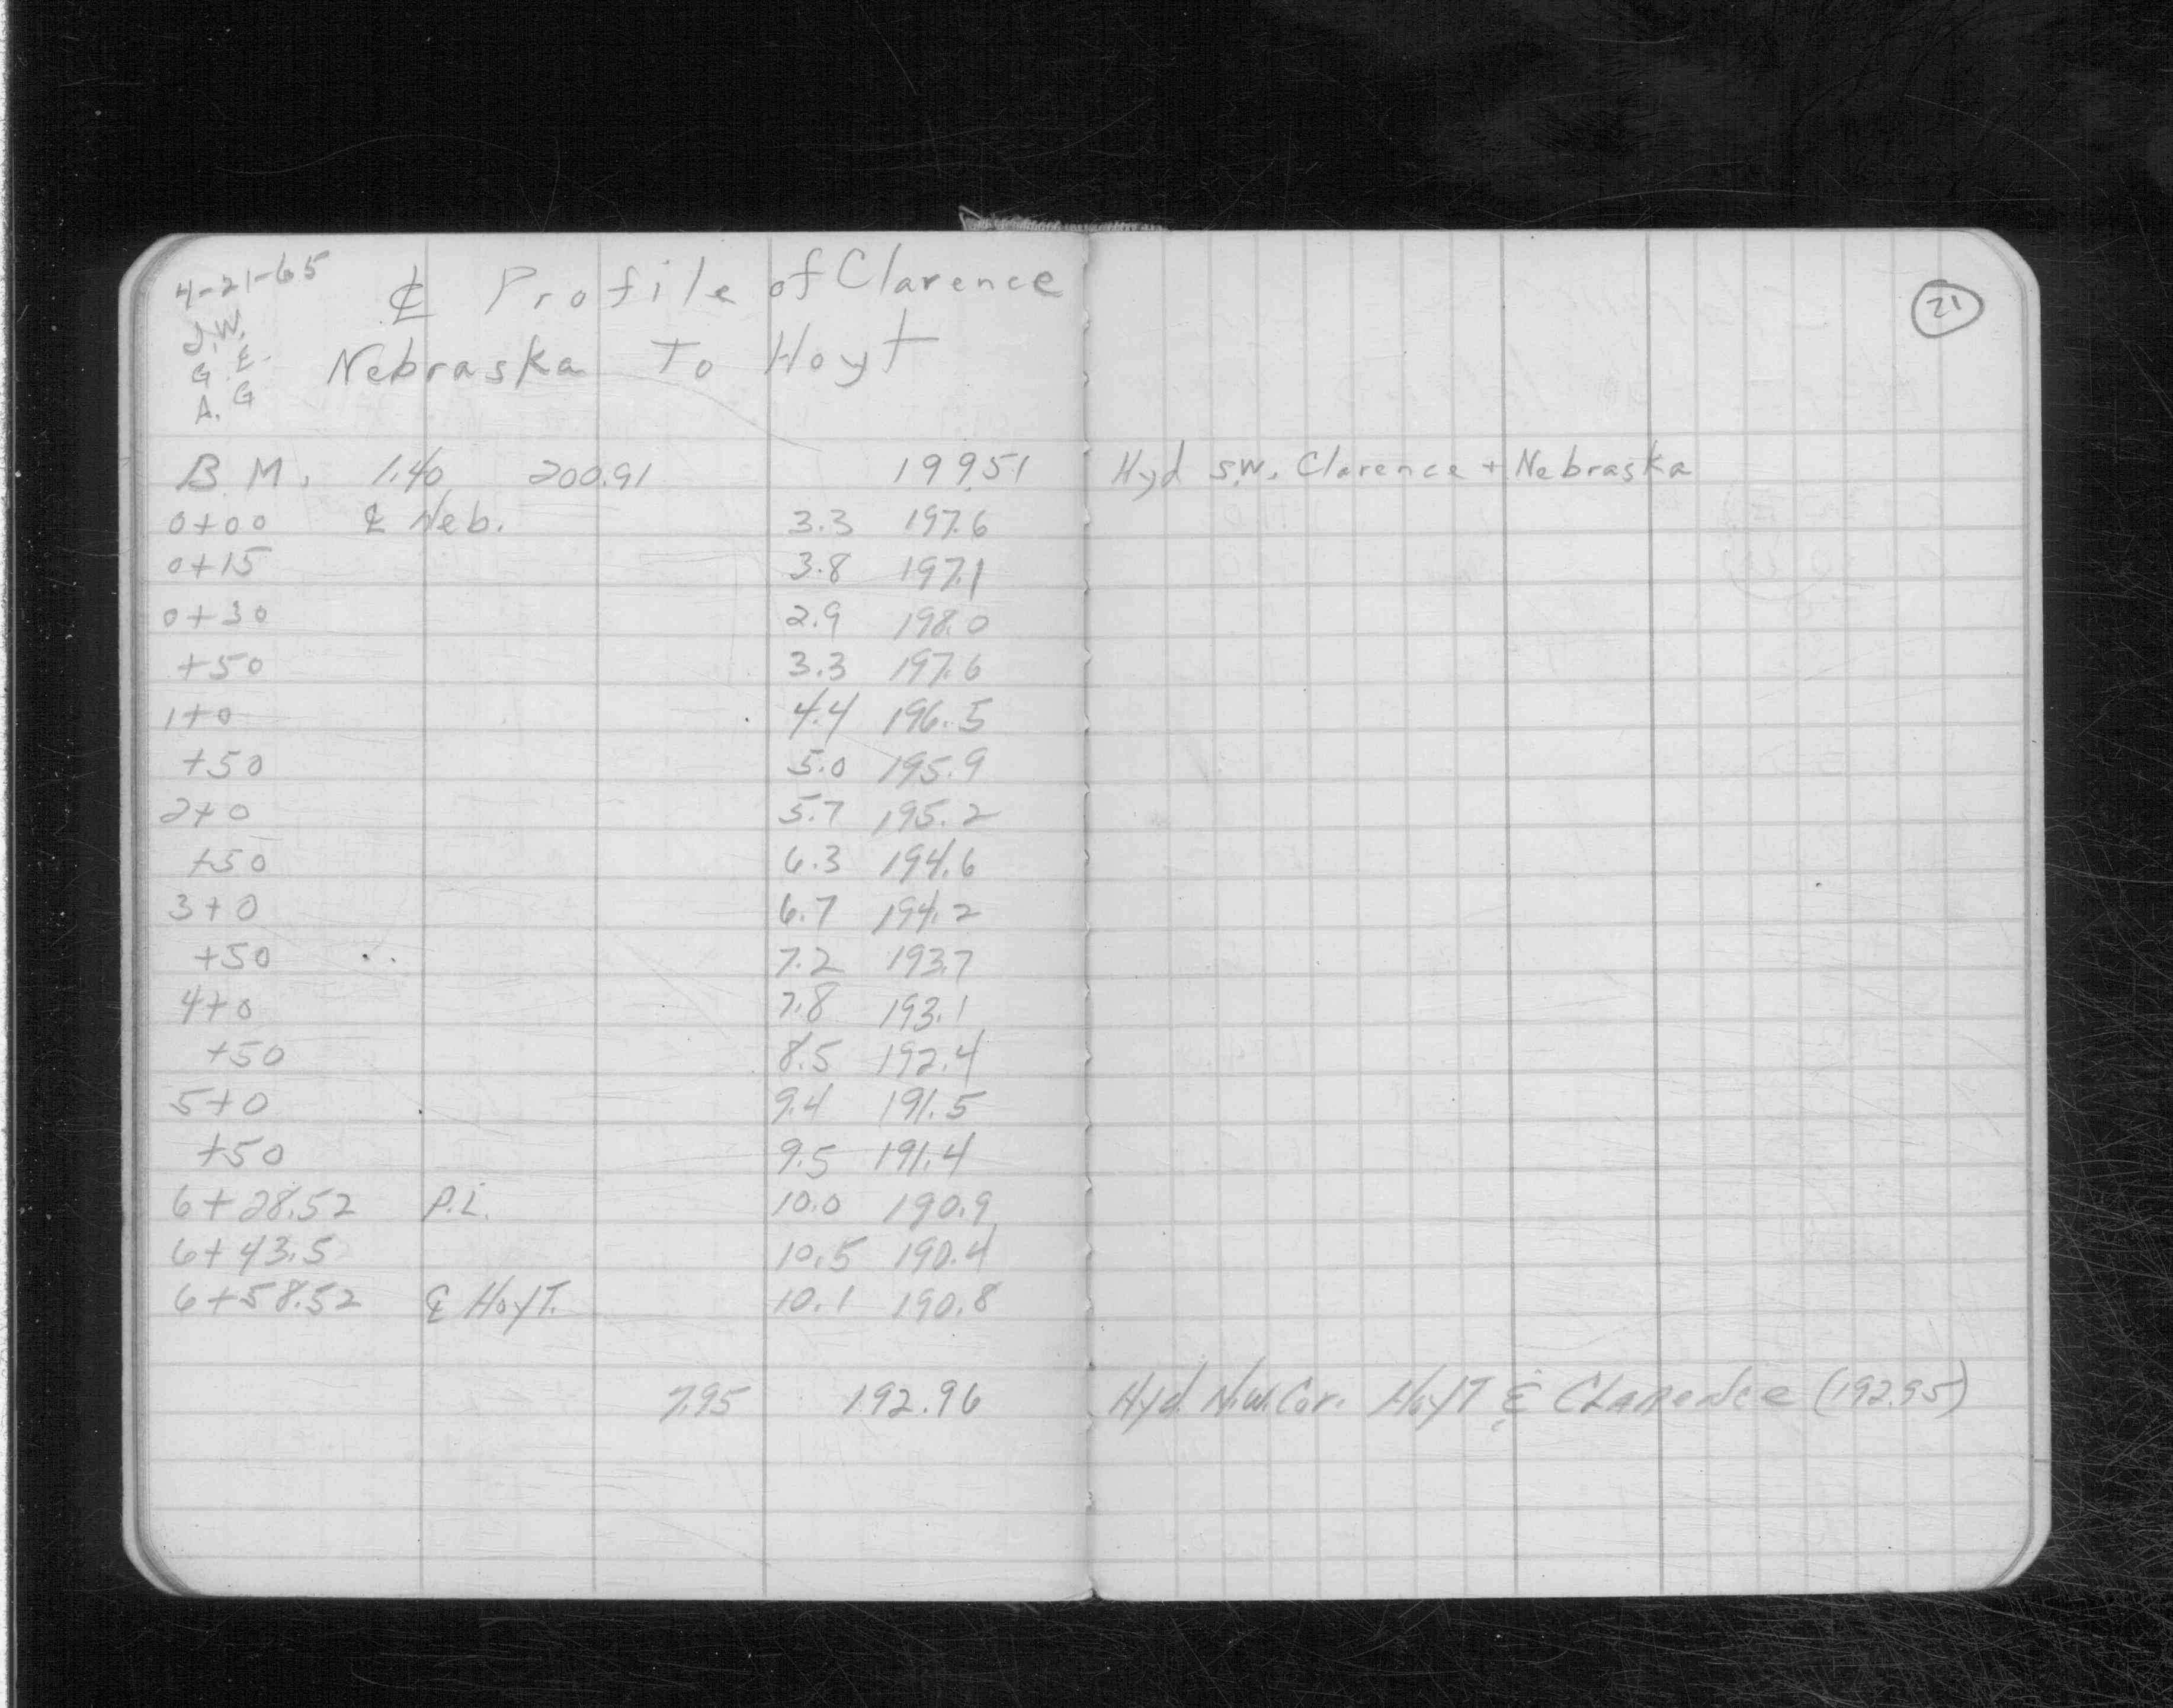 4-21-65
J.W.
G.E.
A.G
℄ Profile of Clarence
Nebraska To Hoyt
21
B.M. 1.40 200.91 199.51 Hyd S.W. Clarence + Nebraska
0+00 ℄ Neb. 3.3 197.6
0+15 3.8 197.1
0+30 2.9 198.0
+50 3.3 197.6
1+0 4.4 196.5
+50 5.0 195.9
2+0 5.7 195.2
+50 6.3 194.6
3+0 6.7 194.2
+50 7.2 193.7
4+0 7.8 193.1
+50 8.5 192.4
5+0 9.4 191.5
+50 9.5 191.4
6+28.52 P.I. 10.0 190.9
6+43.5 10.5 190.4
6+58.52 ℄ HoyT. 10.1 190.8
7.95 192.96 Hyd. N.W. Cor. HoyT & Clarence (192.95)